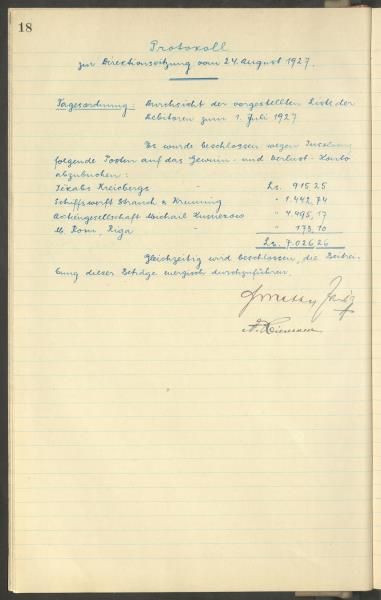 18
Protokoll
zur Direktionssitzung vom 24. August 1927.
Tagesordnung: Durchsicht der vorgestellten Liste der
Debitoren zum 1. Juli 1927
Es wurde beschlossen wegen
folgende Posten auf das Gewinn- und Verlust-Konto
abzubuchen:
Jekabs Kreicbergs " Ls. 915.25
Schiffswerft Strauch & Krumming " 1.442,74
Aktiengesellschaft Michail Kusnezow " 4.495,17
M. Rom, Riga " 173,10
Ls. 7.026,26
Gleichzeitig wird beschlossen, die Beitrei-
bung dieser Beträge energisch durchzuführen.